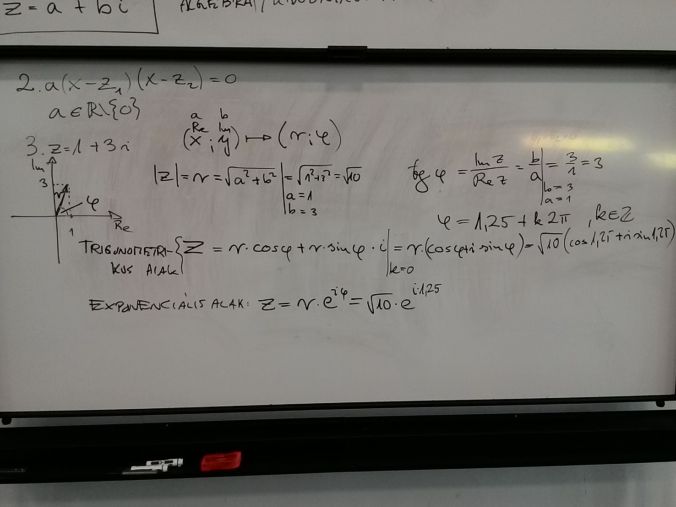 z = a + bi
2. a(x-z₁)(x-z₂)=0
a∈ℝ\{0}
a b
Re Im
(x ; y) ↦ (r;φ)
3. z=1+3i
Im
3
φ
1
Re
|z|=r=√(a²+b²)|=√(1²+3²)=√10
a=1
b=3
tg φ = Im z/Re z = b/a| = 3/1 = 3
b=3
a=1
φ = 1,25 + k2π , k∈Z
TRIGONOMETRI-
KUS ALAK { z = r·cosφ+r·sinφ·i|=r·(cosφ+i sinφ)=√10(cos1,25+i sin1,25)
k=0
EXPONENCIÁLIS ALAK: z=r·e^{iφ}=√10·e^{i·1,25}